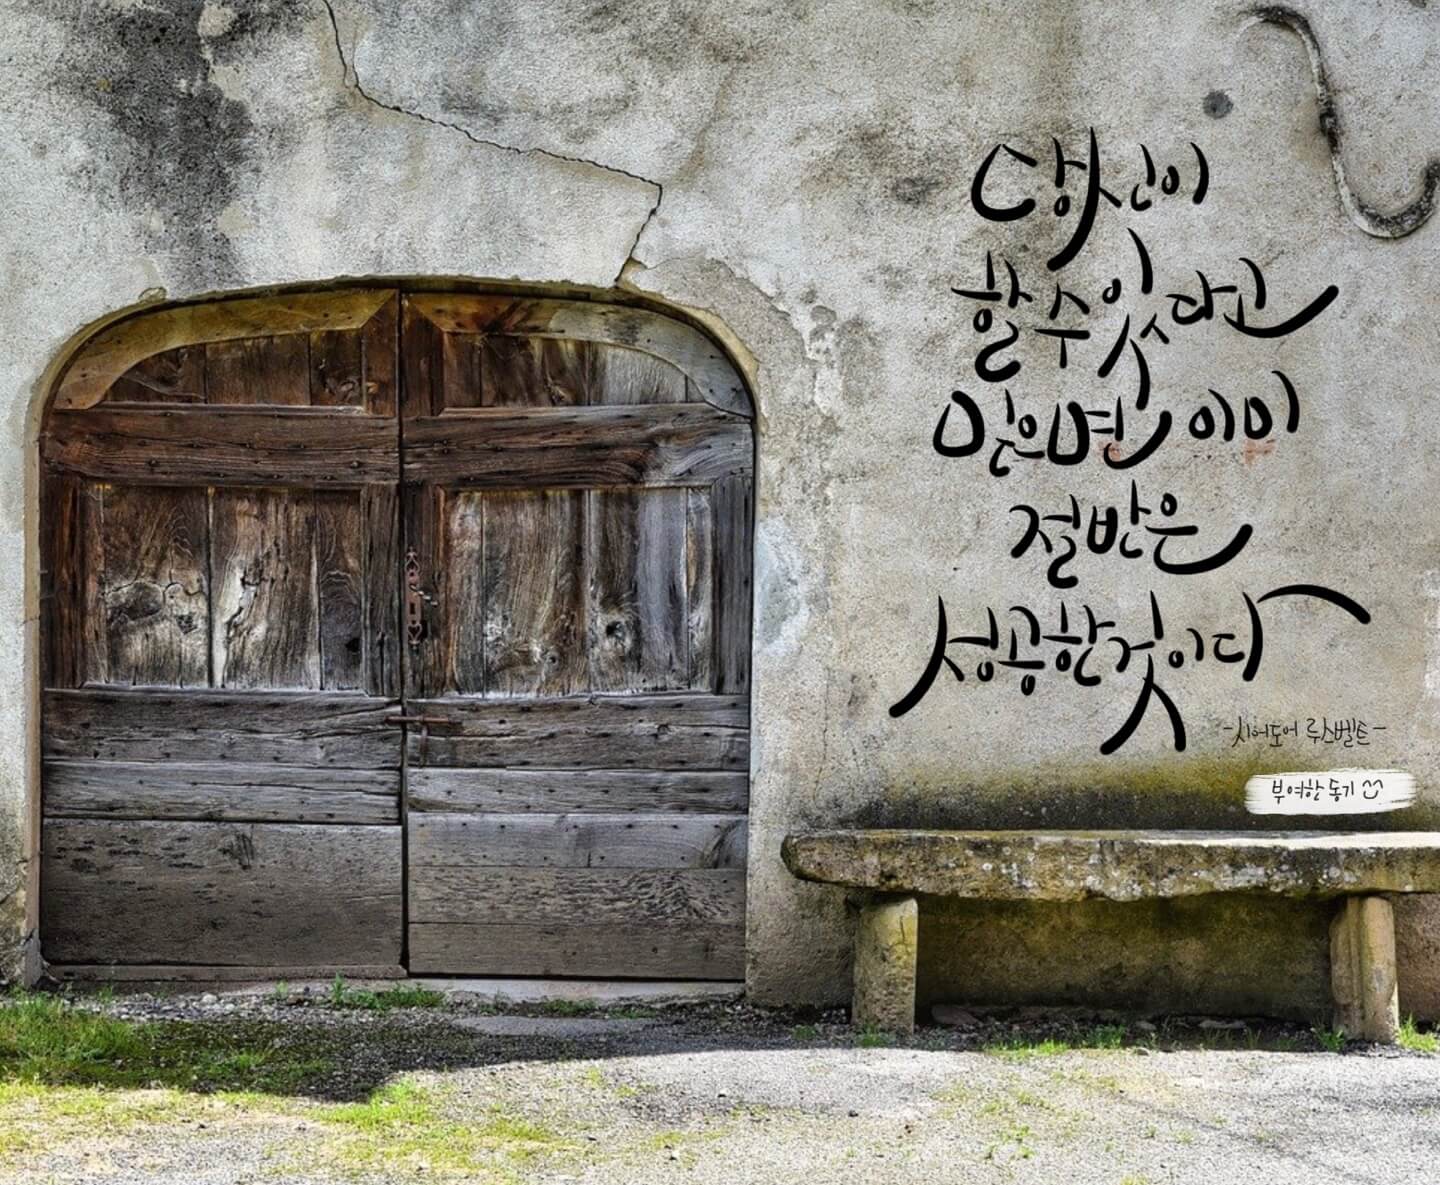 당신이
할 수 있다고
믿으면 이미
절반은
성공한것이다
-시어도어 루스벨트-
부여한 동기